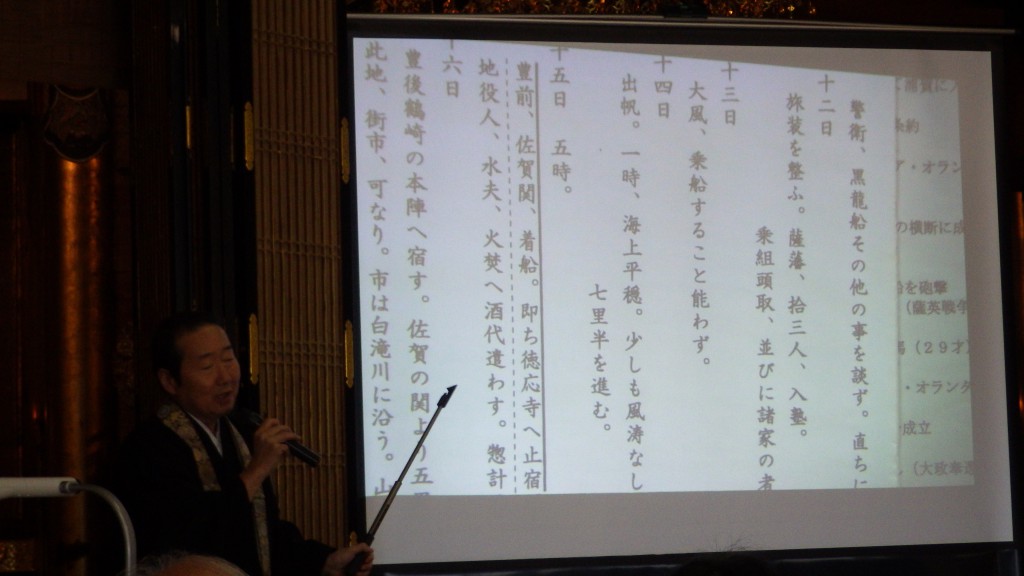 警衛、黒龍船その他の事を談ず。直ちに
十二日
旅装を整ふ。薩藩、拾三人、入塾。
乗組頭取、並びに諸家の者
十三日
大風、乗船すること能わず。
十四日
出帆。一時、海上平穏。少しも風濤なし
七里半を進む。
十五日 五時。
豊前、佐賀関、着船。即ち徳応寺へ止宿
地役人、水夫、火焚へ酒代遣わす。惣計
十六日
豊後鶴崎の本陣へ宿す。佐賀の関より五里
此地、街市、可なり。市は白滝川に沿う。山
条約
・オラン
の横断に成
を砲撃
(薩英戦争
(29才)
・オランダ
成立
(大政奉還